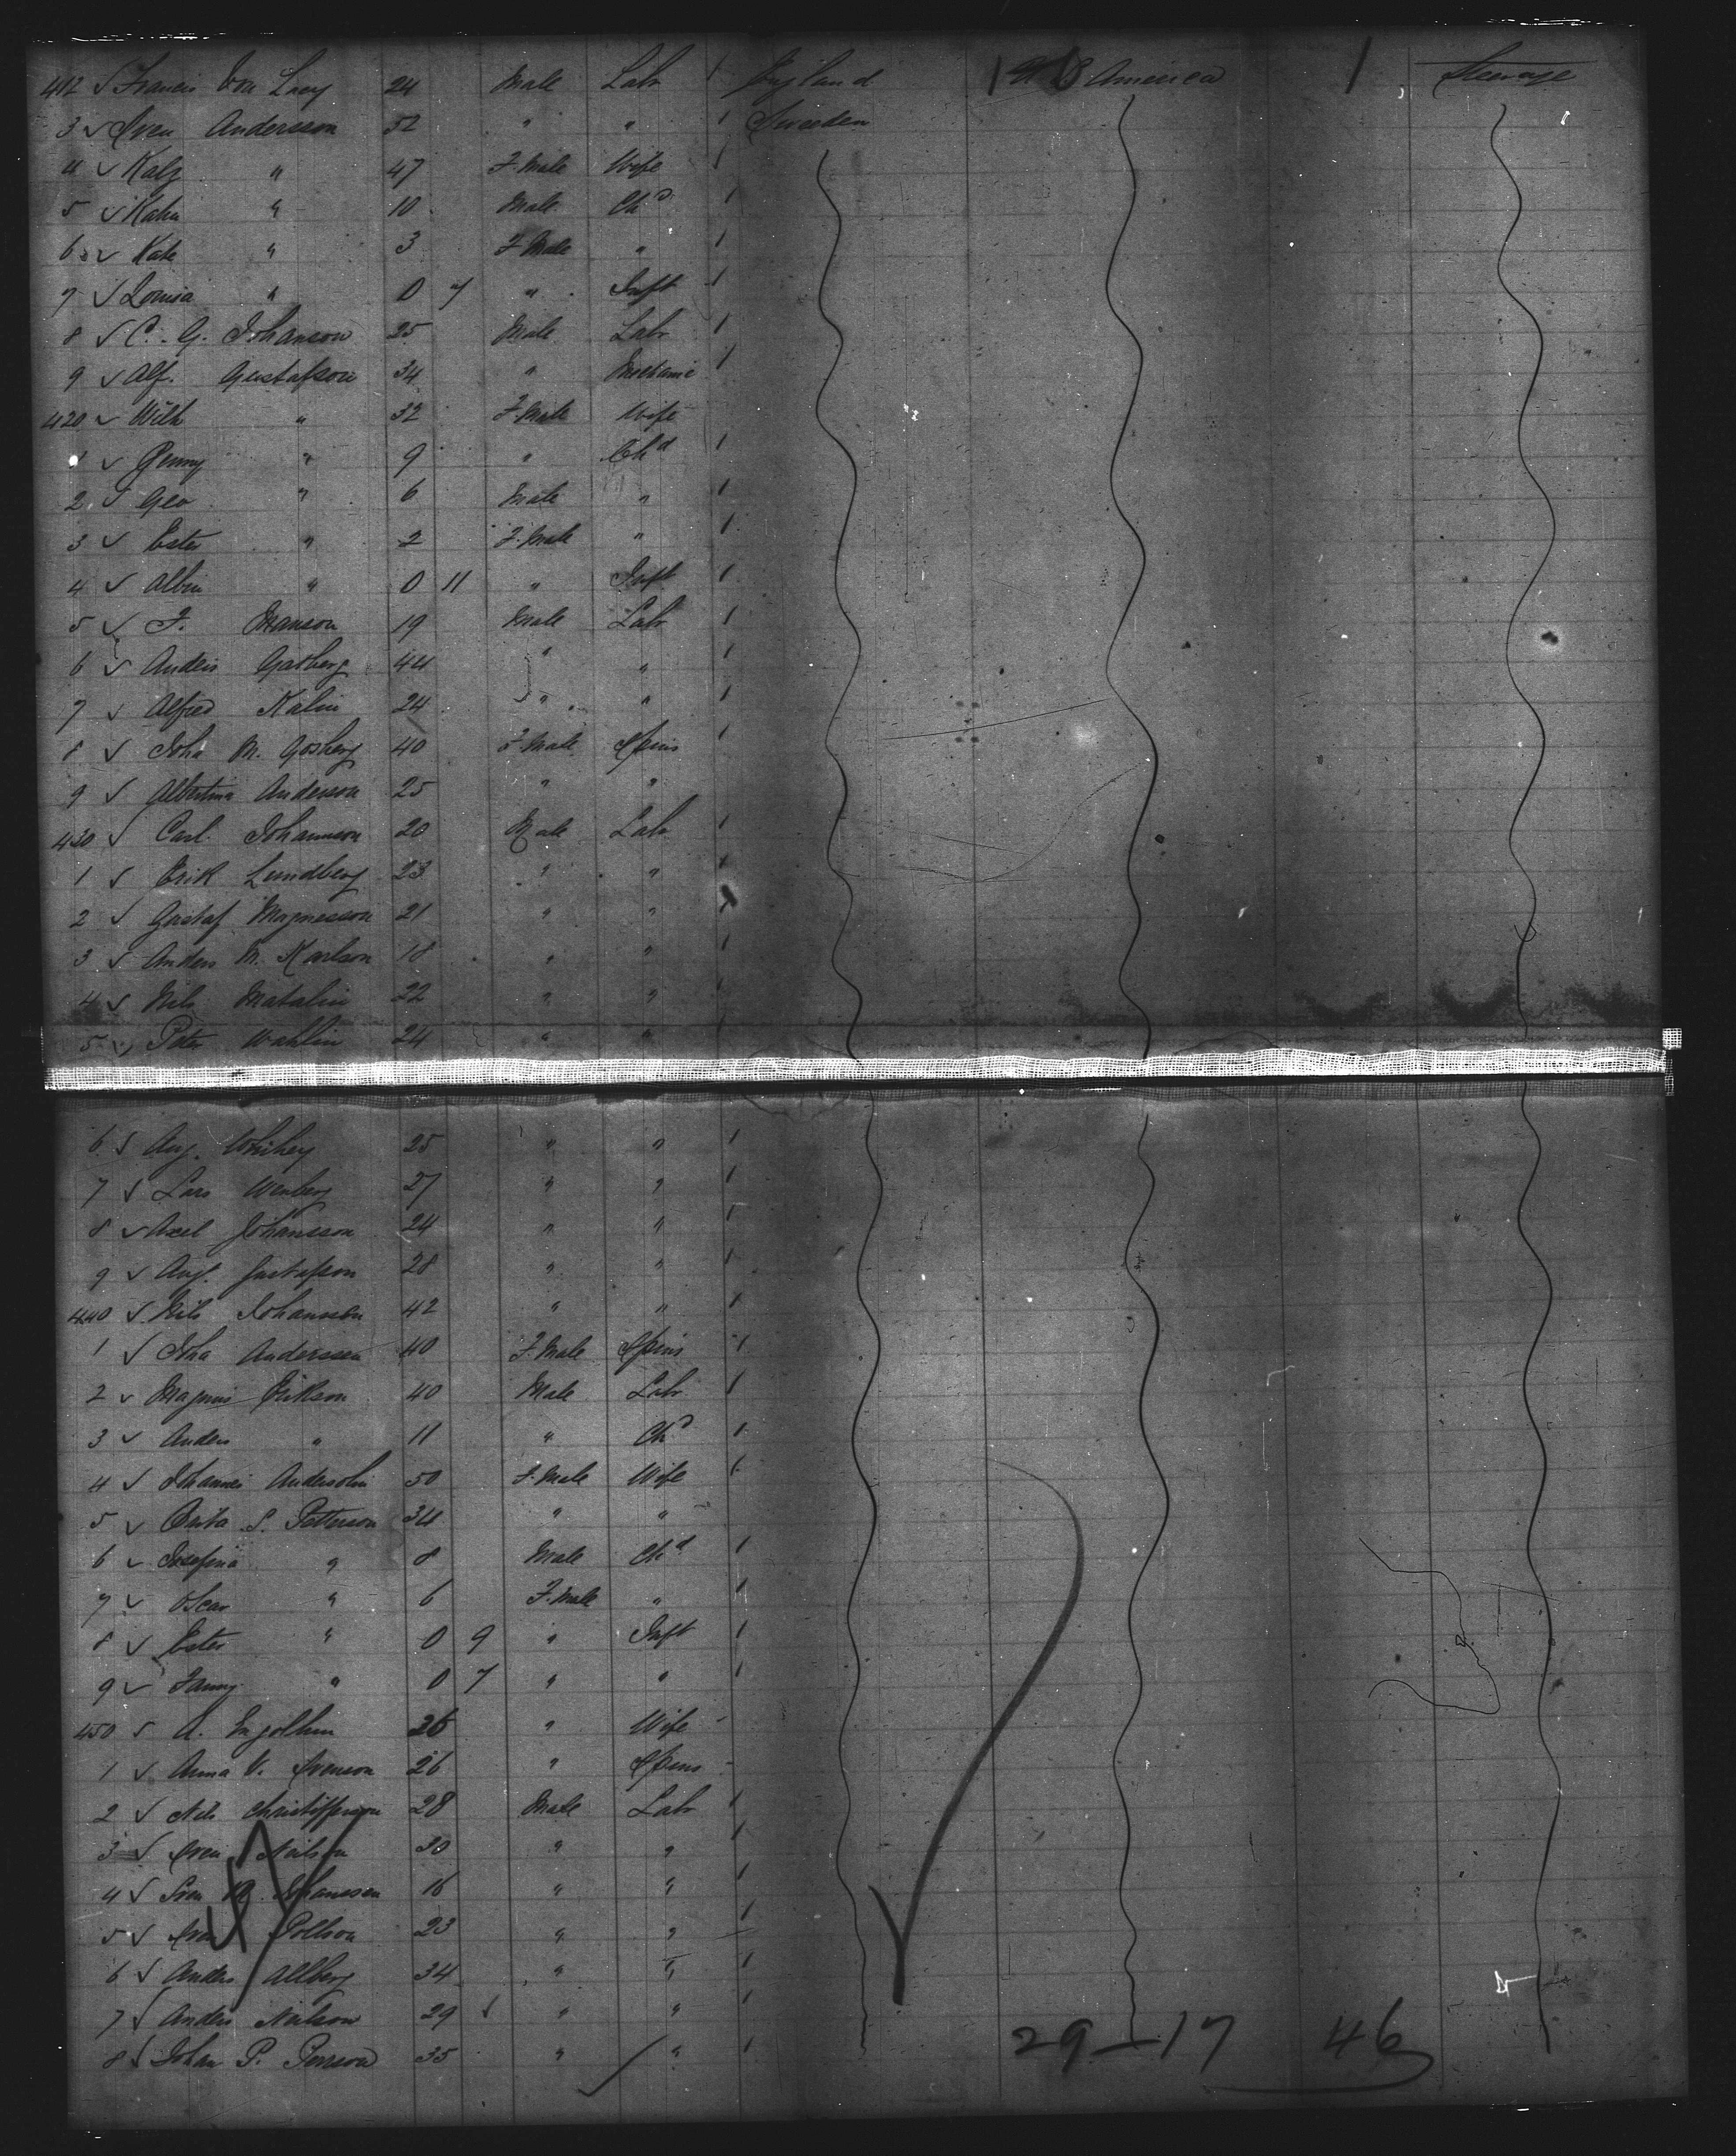 412 √ Francis Von Lacy 24 Male Labr 1 England 1 U S America 1 Steerage
3 √ Sven Andersson 52 " " 1 Sweeden
4 √ " 47 F. Male Wife 1
5 √ " 10 Male Chd 1
6 √ Kate " 3 F Male " 1
7 √ Louisa " 0 7 " Inft 1
8 √ C. G. Johanson 25 Male Labr 1
9 √ Alf. Gustafson 34 " Mechanic 1
420 √ Wilh " 32 F. Male Wife
1 √ Jenny " 9 " Chd 1
2 √ Geo " 6 Male " 1
3 √ Ester " 2 F. Male " 1
4 √ Albin " 0 11 " Inft 1
5 √ F. Manson 19 Male Labr 1
6 √ Anders 44 " " 1
7 √ Alfred Kalin 24 " " 1
8 √ Joha M. Gosberg 40 F. Male Spins 1
9 √ Albertina Anderson 25 " "
430 √ Carl Johannson 20 Male Labr 1
1 √ Erik Lundberg 23 " " 1
2 √ Gustaf Magnesson 21 " " 1
3 √ Anders M. Karlson 18 " " 1
4 √ Nils Matalin 22 " " 1
5 √ Peter Wahlin 24 " " 1
6 √ Aug. 25 " " 1
7 √ Lars Wenberg 27 " " 1
8 √ Axel Johansson 24 " " 1
9 √ Aug. Gustafson 28 " " 1
440 √ Nils Johansson 42 " " 1
1 √ Joha Anderssen 40 F. Male Spins 1
2 √ Magnus Erikson 40 Male Labr 1
3 √ Anders " 11 " Chd 1
4 √ Johannes 50 F. Male Wife 1
5 √ S. Petterson 34 " "
6 √ Josefina " 8 Male Chd 1
7 √ Oscar " 6 F. Male " 1
8 √ Ester " 0 9 " Inft 1
9 √ Fanny " 0 7 " " 1
450 √ A. 26 " Wife
1 √ Anna V. Svenson 26 " Spins
2 √ Nils Christofferson 28 Male Labr 1
3 √ Sven Neilson 30 " " 1
4 √ Sven Johanssen 16 " " 1
5 √ 23 " " 1
6 √ Anders Allberg 34 " " 1
7 √ Anders Neilson 29 √ " " 1
8 √ Johan P. Persson 35 " " 1
29 — 17 46